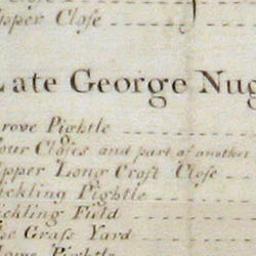 pper Close
Late George Nug
rove Pightle
our Closes and part of another
pper Long Croft Close
ickling Pightle
ickling Field
he Grass Yard
Pightle